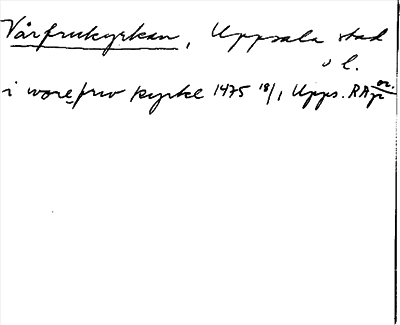 Vårfrukyrkan, Uppsala stad
o l.
i wore frw kyrke 1475 18/1 Upps. RAp or.